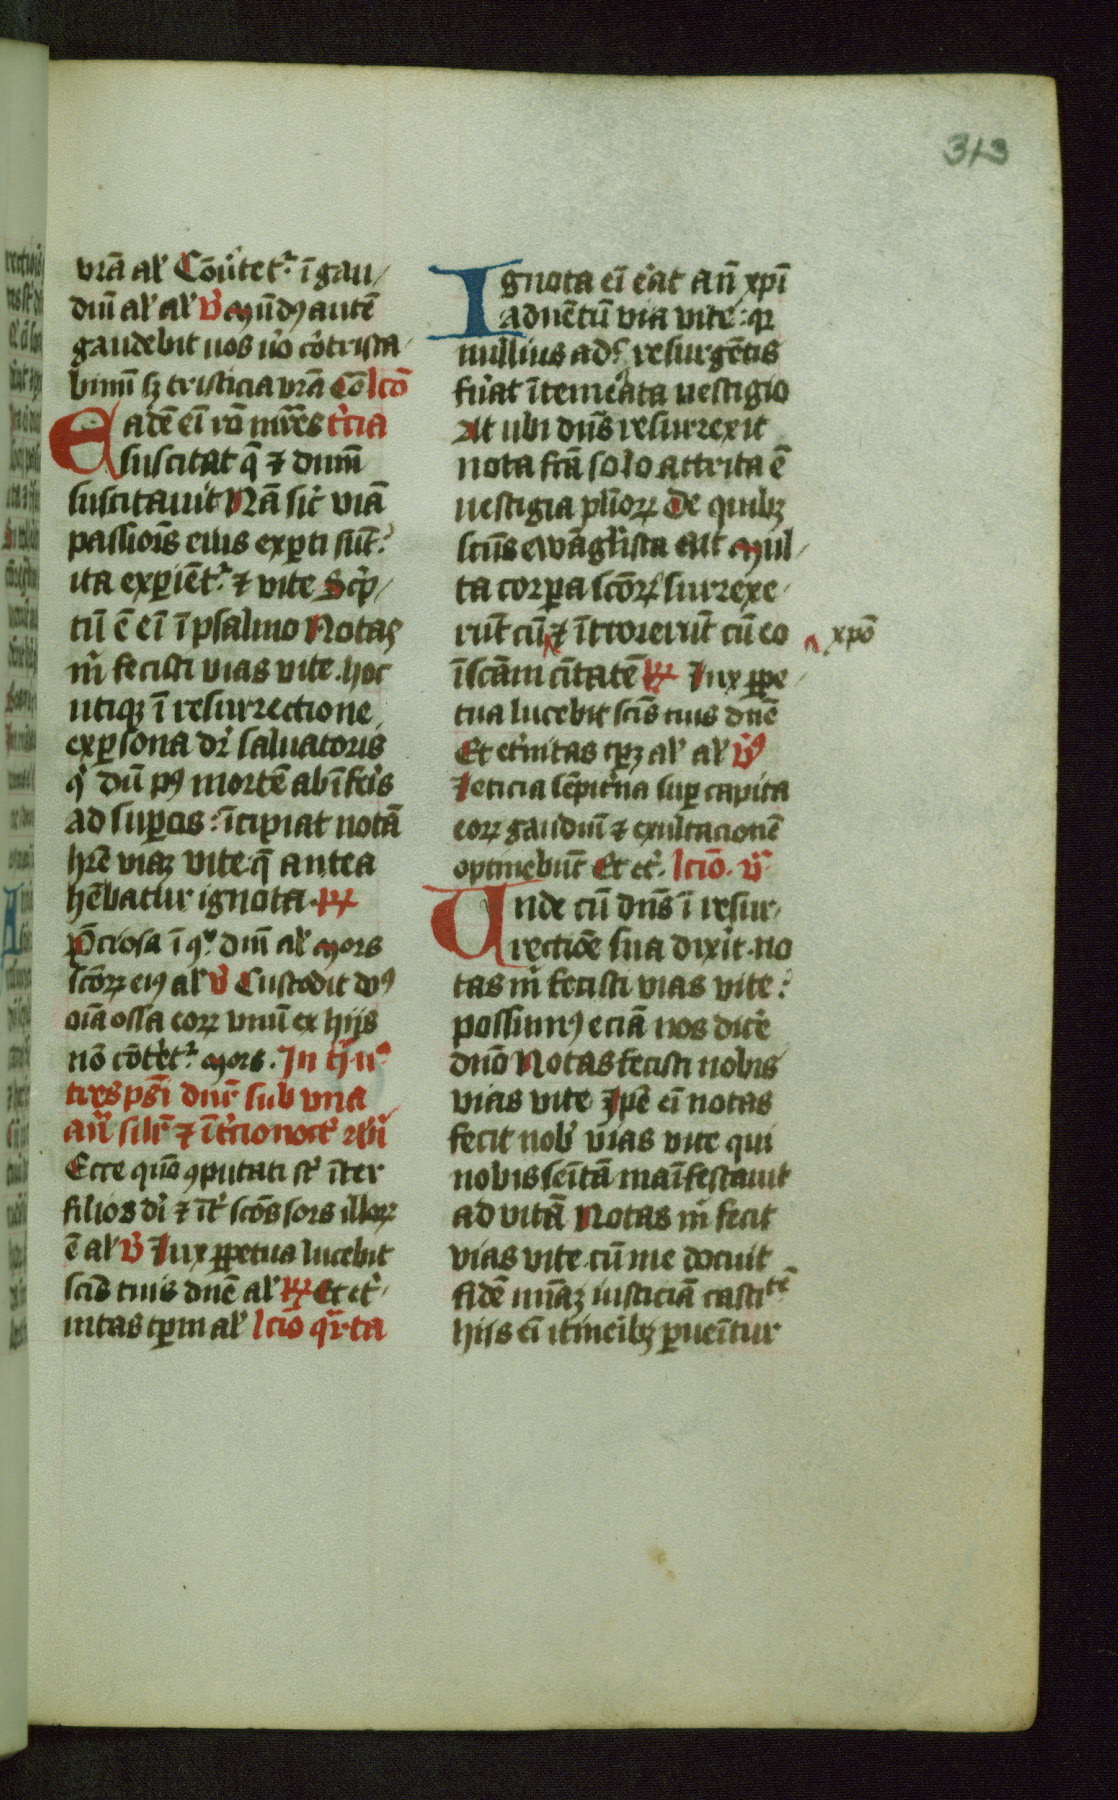 313
vrā al' Cōṽtet᷑ ī gau
diū al' al' v̄ Mūdꝰ autē
gaudebit uos ṽo cōtrista
bimī sꝫ tristicia vrā Cō lcō
Eadē eī rō nr̄es t'cia
suscitat q̄ ⁊ dum
suscitauit Nā sic̄ viā
passiōis eius exꝑti sūt
ita exꝑiēt᷑ ⁊ vite Sc'p
tū ē eī ī psalmo Notas
m̄ fecisti vias vite . hoc
utiqꝫ ī resurrectione
ex ꝑsona dr̄ saluatoris
q̄ dū pꝰ mortē ab īfeīs
ad suꝑos : īcipiat notā
hr̄e viaꝫ vite q̄ antea
hēbatur ignota ꝶ
P̄ciosa ī ꝯsp̄. dn̄i al' Mors
scōꝝ eiꝰ al' v̄ Custodit dn̄s
oīa ossa eoꝝ vnū ex hijs
nō cōtet᷑ Mors . In t'ꝰ nᵒ
tres ps̄i dn̄r sub vna
an̄ silr̄ ⁊ ī t'cio noct̄
Ecce quō ꝯputati sꞇ̄ īter
filios dī ⁊ īt̄ scōs sors illoꝝ
ē al' v̄ Lux ꝑpetua lucebit
scīs tuis dn̄e al' ꝶ Et et'
nitas tp̄m al' lciō qr̄ta
Ignota eī ēat an̄ xpī
aduētū via vite : qꝛ
nullius adᶜ resurgētis
fūat ītemēata uestigio
At ubi dn̄s resurrexit
nota fcā solo attrita ē
uestigia pl'ioꝝ De quibꝫ
scūs ewāgl'ista ait Mul
ta corꝑa scōꝝ surrexe
rūt cū ⁊ ītroierūt cū eo
xp̄o
ī scām cītatē ꝶ Lux ꝑpe
tua lucebit scīs tuis dn̄e
Et et'nitas tp̄ꝫ al' al' v̄
Leticia sēpit'na suꝑ capita
eoꝝ gaudiū ⁊ exultacionē
optinebūt Et et'. lciō . v̄
Unde cū dn̄s ī resur
rectiōe sua dixit . no
tas m̄ fecisti vias vite :
possumꝰ eciā nos dic̄e
dn̄o Notas fecisti nobis
vias vite Ip̄e eī notas
fecit nob' vias vite qui
nobis seītā maīfestauit
ad vitā Notas m̄ fecit
vias vite cū me docuit
fidē mīaꝫ iusticiā casti tē
hijs eī itineribꝫ ꝑuenītur